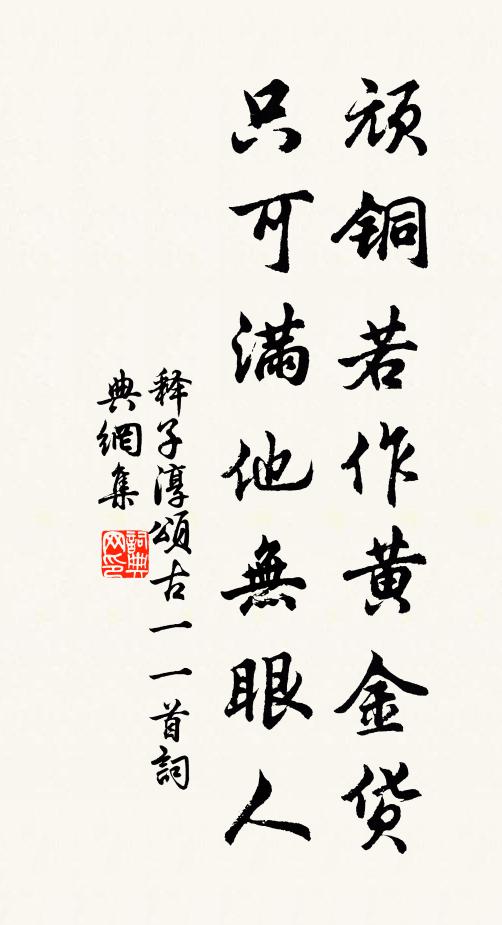 頑銅若作黄金貨
只可滿他無眼人
释子淳頌古一一首詞
典網集
詞典网印